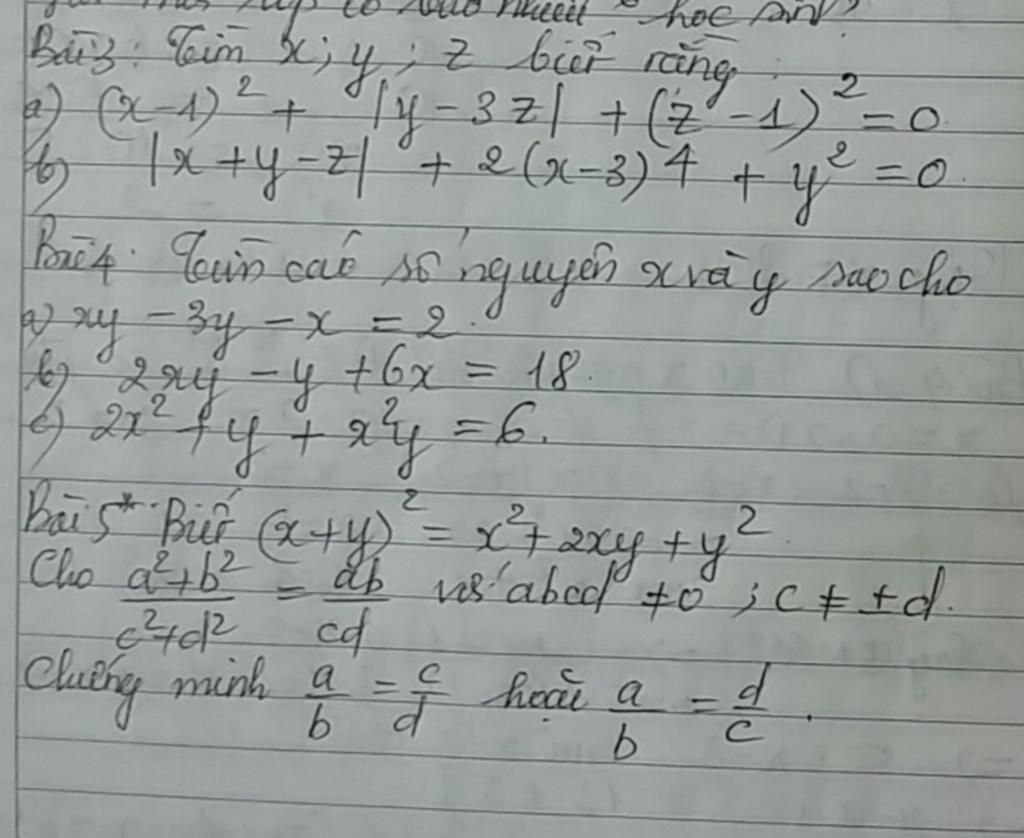 học sinh?
Bài 3: Tìm x; y; z biết rằng:
a) (x-1)² + |y - 3z| + (z - 1)² = 0
b) |x + y - z| + 2(x-3)4 + y² = 0.
Bài 4. Tìm các số nguyên x và y sao cho
a) xy - 3y - x = 2.
b) 2xy - y + 6x = 18.
c) 2x² + y + x²y = 6.
Bài 5* Biết (x+y)² = x² + 2xy + y².
Cho \frac{a²+b²}{c²+d²} = \frac{ab}{cd} với abcd ≠ 0; c ≠ ±d.
Chứng minh \frac{a}{b} = \frac{c}{d} hoặc \frac{a}{b} = \frac{d}{c}.